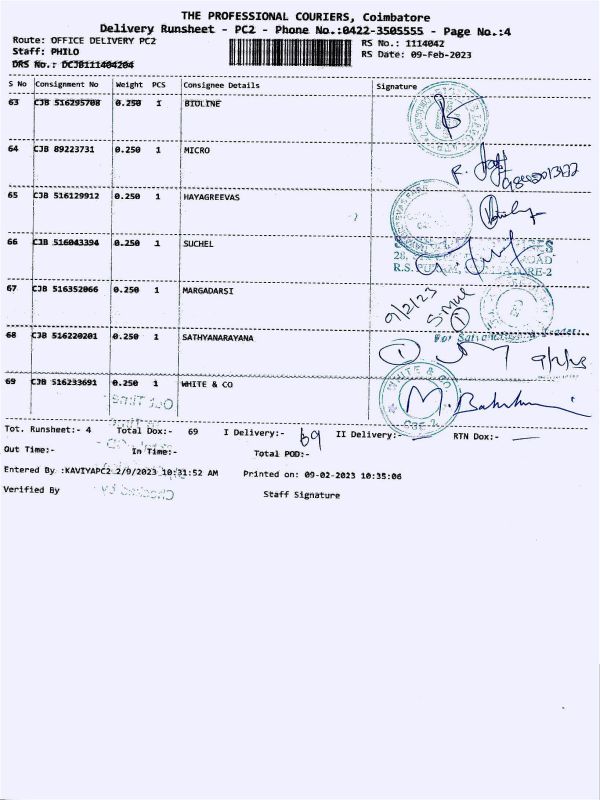 THE PROFESSIONAL COURIERS, Coimbatore
Delivery Runsheet - PC2 - Phone No.:0422-3505555 - Page No.:4
Route: OFFICE DELIVERY PC2 RS No.: 1114042
Staff: PHILO RS Date: 09-Feb-2023
DRS No.: DCJB111404204
S No Consignment No Weight PCS Consignee Details Signature
63 CJB 516295708 0.250 1 BIOLINE
64 CJB 89223731 0.250 1 MICRO
65 CJB 516129912 0.250 1 HAYAGREEVAS
66 CJB 516043394 0.250 1 SUCHEL
28, ROAD
R.S. PURAM, COIMBATORE-2
67 CJB 516352066 0.250 1 MARGADARSI 9/2/23
68 CJB 516220201 0.250 1 SATHYANARAYANA
For
1 9/2/23
69 CJB 516233691 0.250 1 WHITE & CO WHITE & CO CBE-2
Tot. Runsheet:- 4 Total Dox:- 69 I Delivery:- 69 II Delivery:- RTN Dox:-
Out Time:- In Time:- Total POD:-
Entered By :KAVIYAPC2 2/9/2023 10:31:52 AM Printed on: 09-02-2023 10:35:06
Verified By Staff Signature